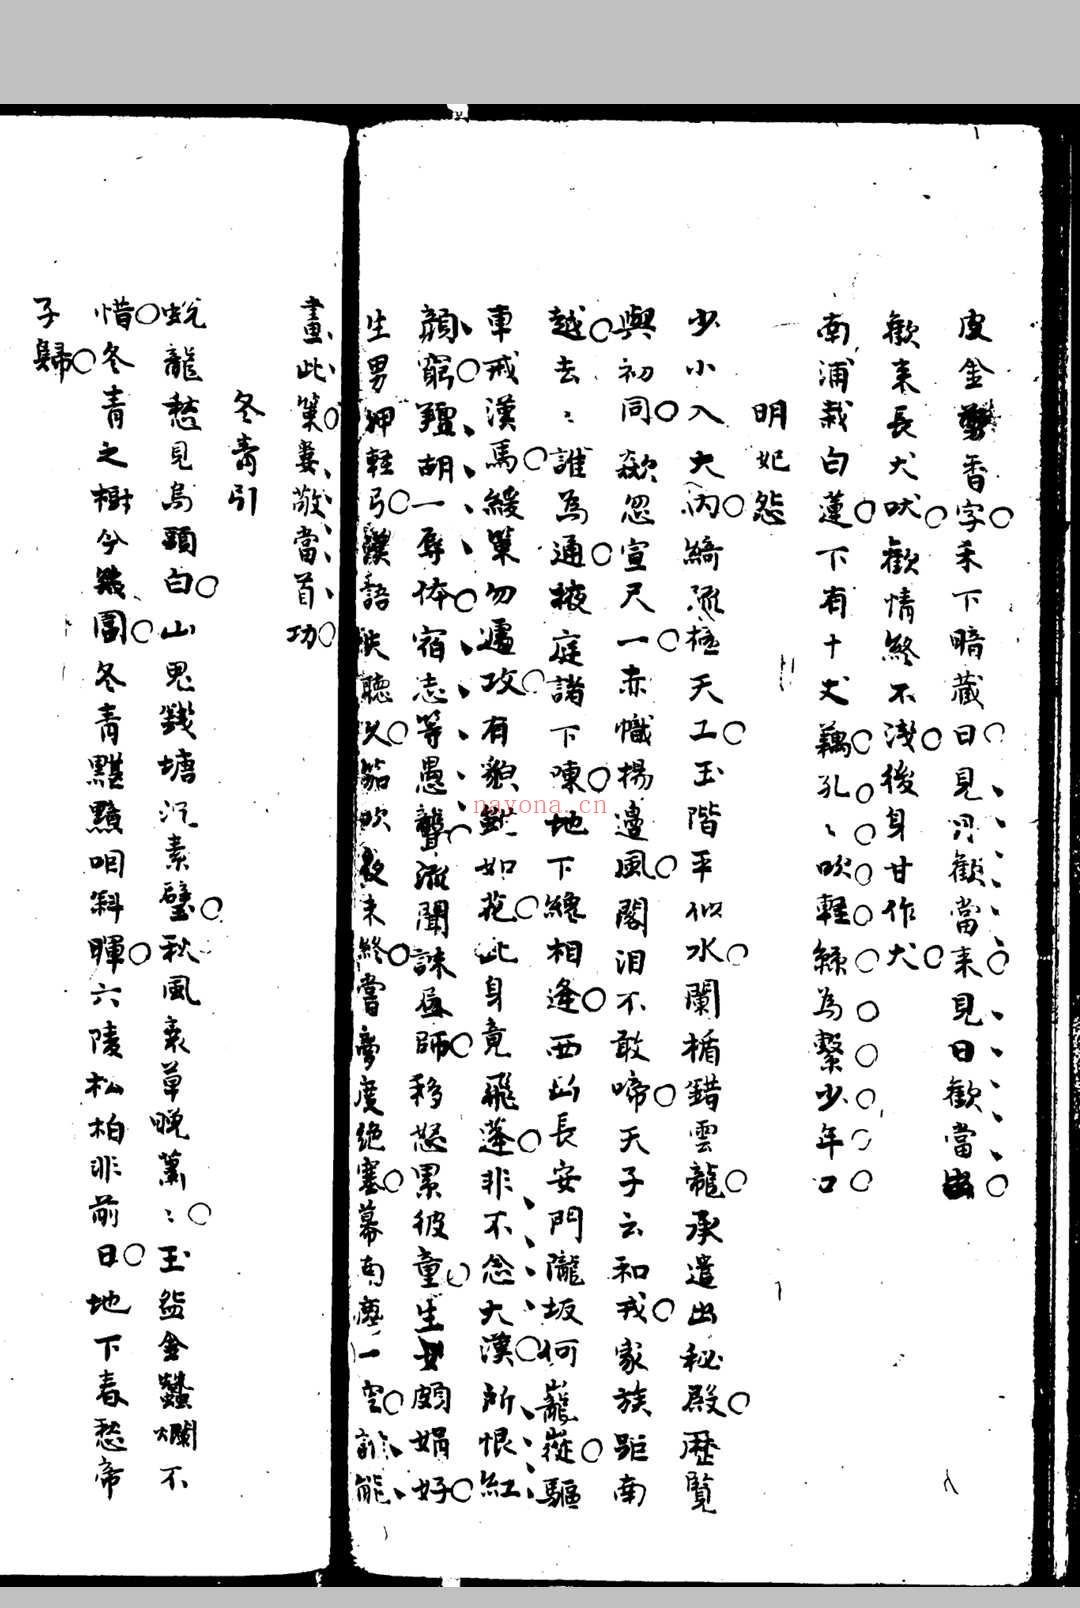 皮金剪香字禾下暗藏日見月歡當來見日歡當出
歡來長犬吠歡情終不淺後身甘作犬
南浦栽白蓮下有十丈藕孔〻吹輕絲為繫少年口
明妃怨
少小入大內綺疏極天工玉階平似水闌楯錯雲龍承遣出秘殿歷覽
與初同欻忽宣尺一赤幟揚邊風閣泪不敢啼天子云和戎家族距南
越去〻誰為通掖庭諸下陳地下總相逢西出長安門隴坂何巃嵸驅
車戒漢馬緩策勿遽攻有貌如花此身竟飛蓬非不念大漢所恨紅
顏窮羶胡一辱体宿志等愚聾流聞誅畫師移怒累彼童生女頗娟好
生男狎輕弓漢語聽久笳吹夜未終嘗夢度絕塞幕南塵一空誰能
畫此策婁敬當首功
冬青引
蛻龍愁見烏頭白山鬼錢塘沉素璧秋風衰草晚蕭〻玉盌金蠶爛不
惜冬青之樹今幾圍冬青黮黮咽斜暉六陵松柏非前日地下春愁帝
子歸
nayona.cn